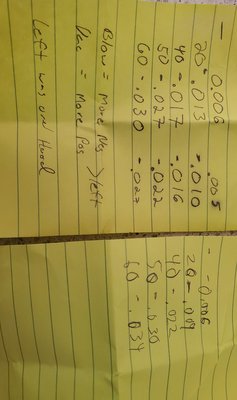 - 0.006 .005
20 -.013 -.010
40 -.017 -.016
50 -.027 -.022
60 -.030 -.027
Blow = More Neg > left
Vac = More Pos
Left was on Hood
- -0.006
20 -.019
40 -.022
50 -.030
60 -.034